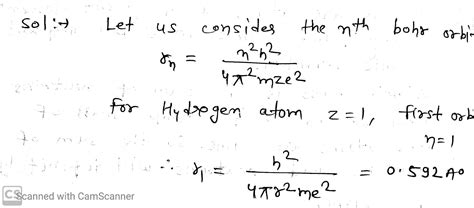 Sol:→ Let us consider the nth bohr orbi-
rₙ = n²h² / 4π²mze²
for Hydrogen atom z=1, first orb
n=1
∴ r₁ = h² / 4π²me² = 0.592A⁰
CS Scanned with CamScanner